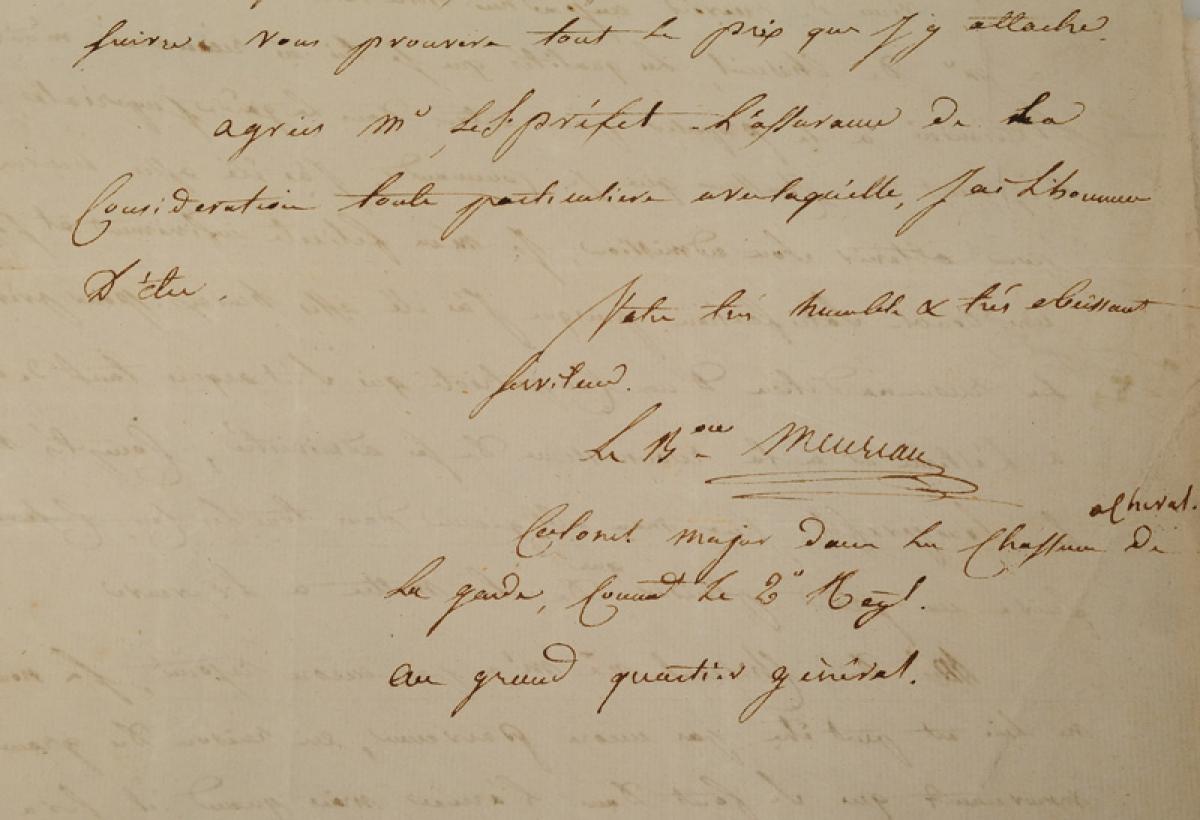 suivre vous prouvera tout le prix que j'y attache.
agréés Mr. Le S. préfet L'assurance de La
Consideration toute particuliere aveclaquelle, J'ai L'honneur
D'être.
Votre très humble & très obeissant
serviteur.
Le Bon Meuziau
a Cheval.
Colonel major dans les Chasseurs De
La garde, Command le 2e Regt.
au grand quartier général.